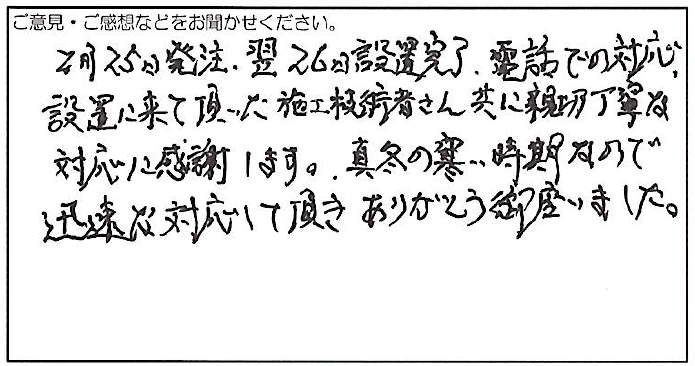 ご意見・ご感想などをお聞かせください。
2月25日発注、翌26日設置完了、電話での対応、
設置に来て頂いた施工技術者さん共に親切丁寧な
対応に感謝します。真冬の寒い時期なので
迅速な対応して頂きありがとう御座いました。